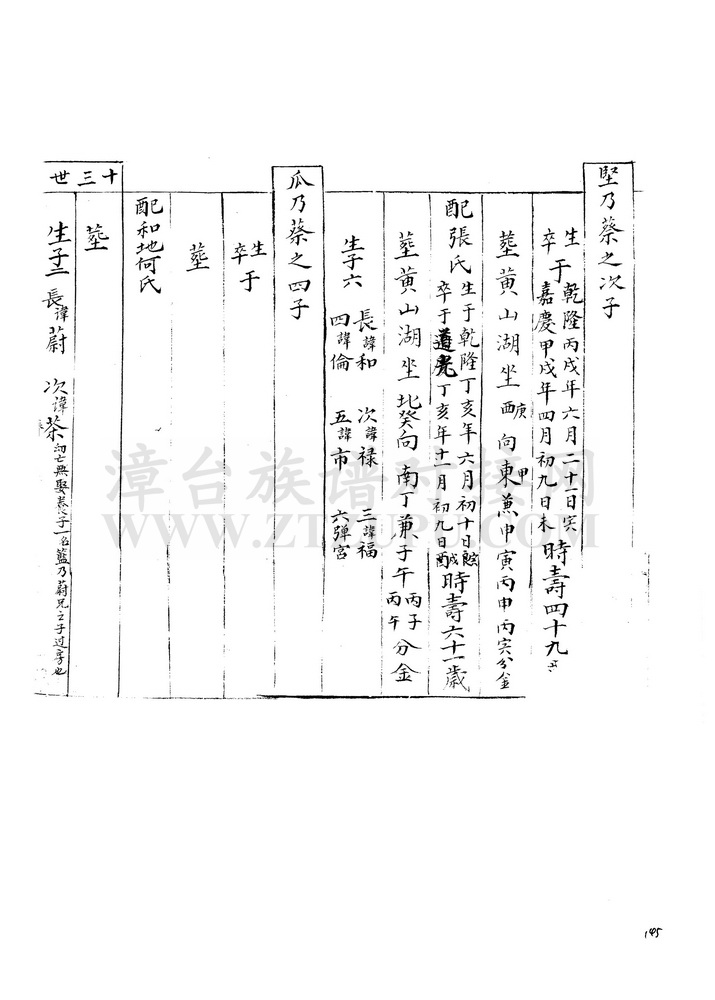 堅乃蔡之次子
生于乾隆丙戌年六月二十一日寅
卒于嘉慶甲戌年四月初九日未時壽四十九
葬黄山湖坐西庚向東甲兼申寅丙申丙寅分金
配張氏生于乾隆丁亥年六月初十日
卒于道光丁亥年十一月初九日酉戌時壽六十一歲
葬黄山湖坐北癸向南丁兼子午丙子丙午分金
生子六 長諱和 次諱禄 三諱福
四諱倫 五諱市 六彈宮
瓜乃蔡之四子
生于
卒于
葬
配和地何氏
十三世
葬
生子二 長諱蔚 次諱茶幼亡無娶養子一名藍乃蔚兄之子过房也
145
漳台族谱对接网
WWW.ZTZUPU.COM